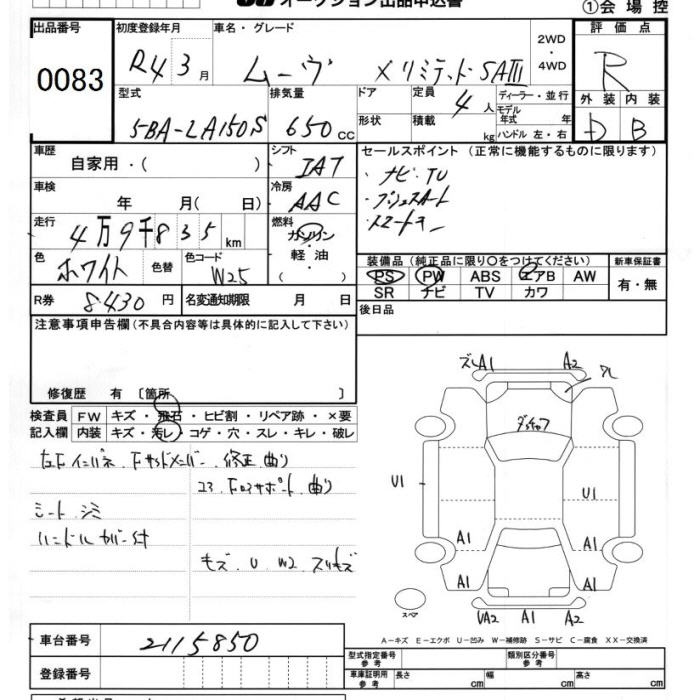 オークション出品申込書
①会場控
出品番号 0083
初度登録年月 R4 3月
車名・グレード ムーヴ XリミテッドSAⅢ
2WD・4WD
評価点 R
外装 D 内装 B
型式 5BA-LA150S
排気量 650cc
ドア 形状
定員 4人
積載 kg
ディーラー・並行
モデル年式 年
ハンドル 左・右
車歴 自家用・( )
シフト IAT
セールスポイント (正常に機能するものに限ります)
ナビ・TV
プッシュスタート
スマートキー
車検 年 月( 日)
冷房 AAC
走行 4万9千835km
燃料 ガソリン・軽油・( )
色 ホワイト 色替
色コード W25
装備品 (純正品に限り○をつけてください)
PS PW ABS エアB AW
SR ナビ TV カワ
新車保証書 有・無
R券 8430円
名変通知期限 月 日
後日品
注意事項申告欄 (不具合内容等は具体的に記入して下さい)
修復歴 有 〔箇所 〕
検査員記入欄
FW キズ・飛石・ヒビ割・リペア跡・×要
内装 キズ・汚レ・コゲ・穴・スレ・キレ・破レ
左Fインパネ Fサイドメンバー 修正 曲り
コアサポート 曲り
シート シミ
ハンドル カバー付
キズ U W2 スリキズ
ズレ A1 A2
ワレ
U1 U1
A1 A1
A1 A1
スペア
UA2 A1 A2
A-キズ E-エクボ U-凹み W-補修跡 S-サビ C-腐食 XX-交換済
車台番号 2115850
登録番号
型式指定番号 参考
類別区分番号 参考
車庫証明用 参考 長さ cm 幅 cm 高さ cm